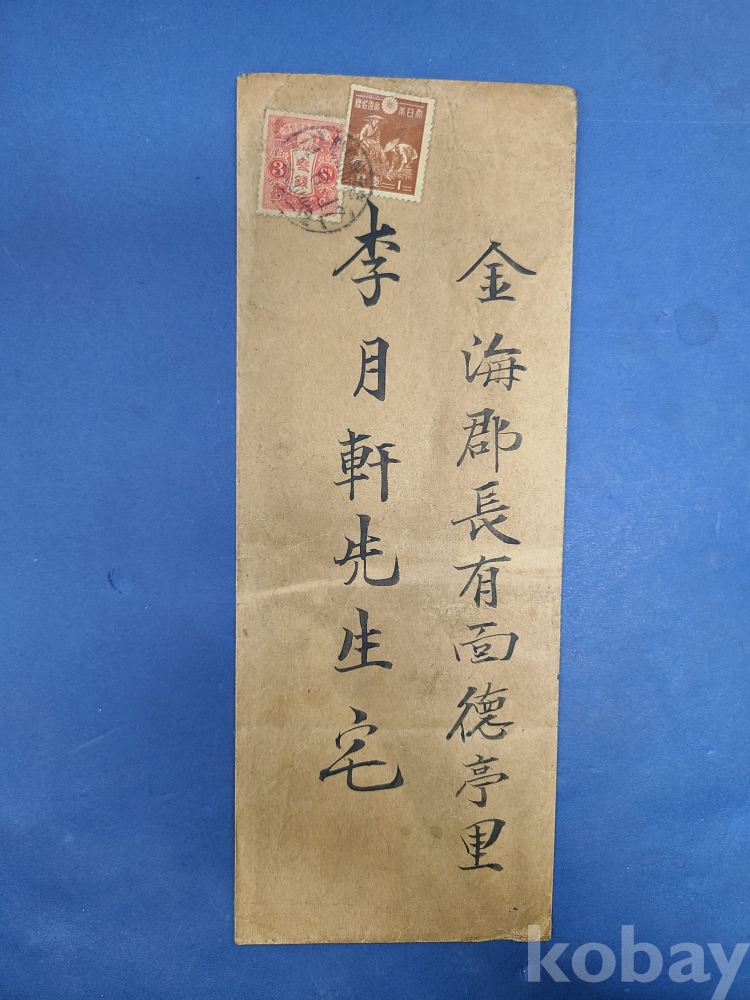 金海郡長有面德亭里
李月軒先生宅
大日本帝國郵便
1
3
參錢
kobay